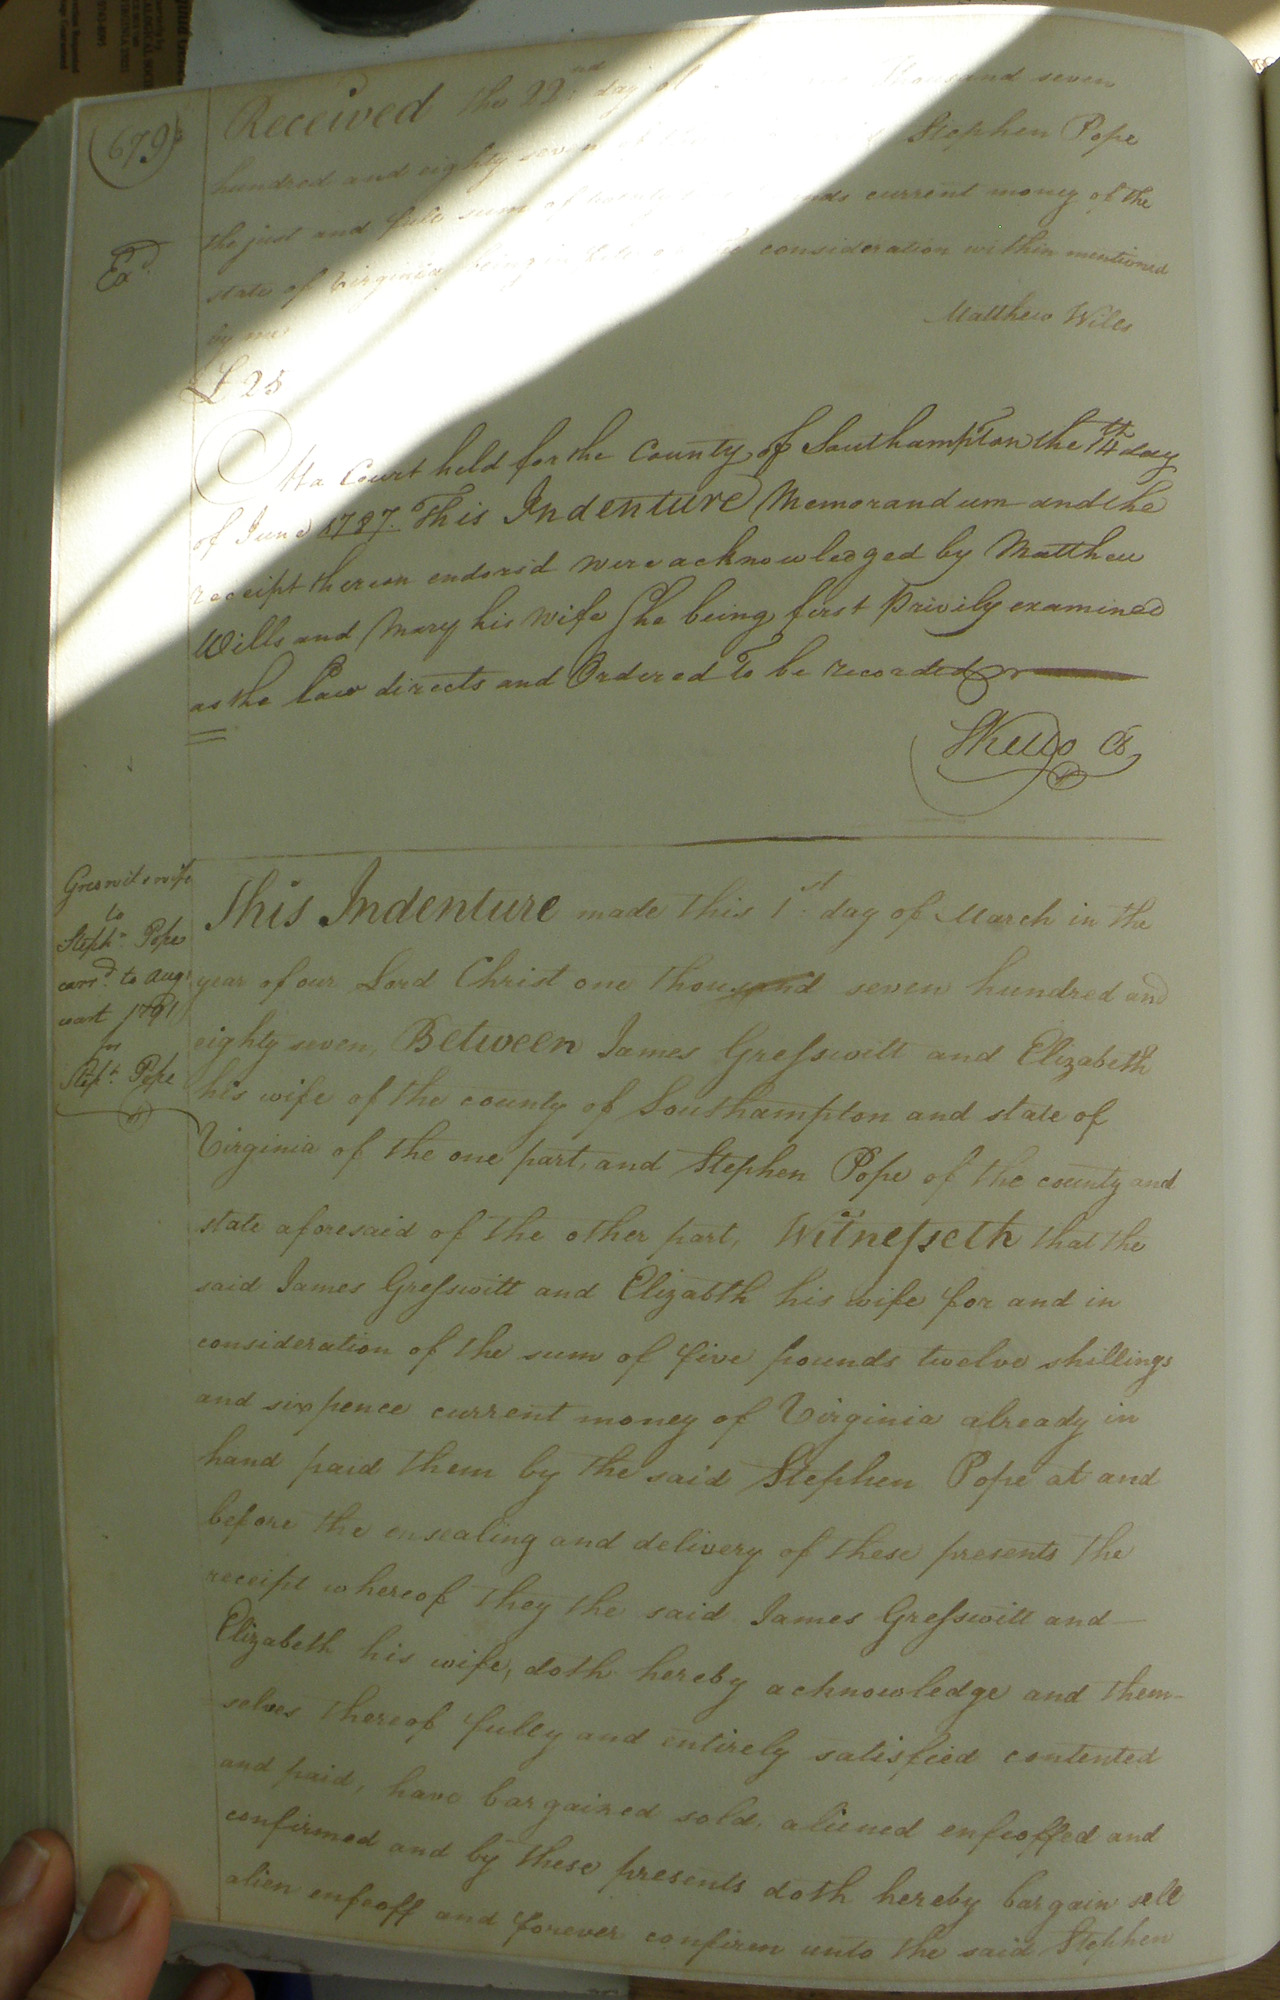 (679)
Received the 22nd day of thousand seven
hundred and eighty seven of Stephen Pope
the just and full sum of twenty pounds current money of the
state of Virginia being in consideration within mentioned
by me
Matthew Wiles
Exd
£25
At a Court held for the County of Southampton the 14th day
of June 1787. This Indenture Memorandum and the
receipt thereon endorsd were acknowledged by Matthew
Wills and Mary his Wife She being first Privily examined
as the Law directs and Ordered To be recorded
Greswit & wife
to
Stephn Pope
carrd to Augt
court 1791
pr
Stepn Pope
This Indenture made this 1st day of March in the
year of our Lord Christ one thousand seven hundred and
eighty seven, Between James Gresswitt and Elizabeth
his wife of the county of Southampton and state of
Virginia of the one part, and Stephen Pope of the county and
state aforesaid of the other part, Witnesseth that the
said James Gresswitt and Elizabth his wife for and in
consideration of the sum of five pounds twelve shillings
and six pence current money of Virginia already in
hand paid them by the said Stephen Pope at and
before the ensealing and delivery of these presents the
receipt whereof they the said James Gresswitt and
Elizabeth his wife, doth hereby acknowledge and them-
selves thereof fully and entirely satisfied contented
and paid, have bargained sold, aliened enfeoffed and
confirmed and by these presents doth hereby bargain sell
alien enfeoff and forever confirm unto the said Stephen